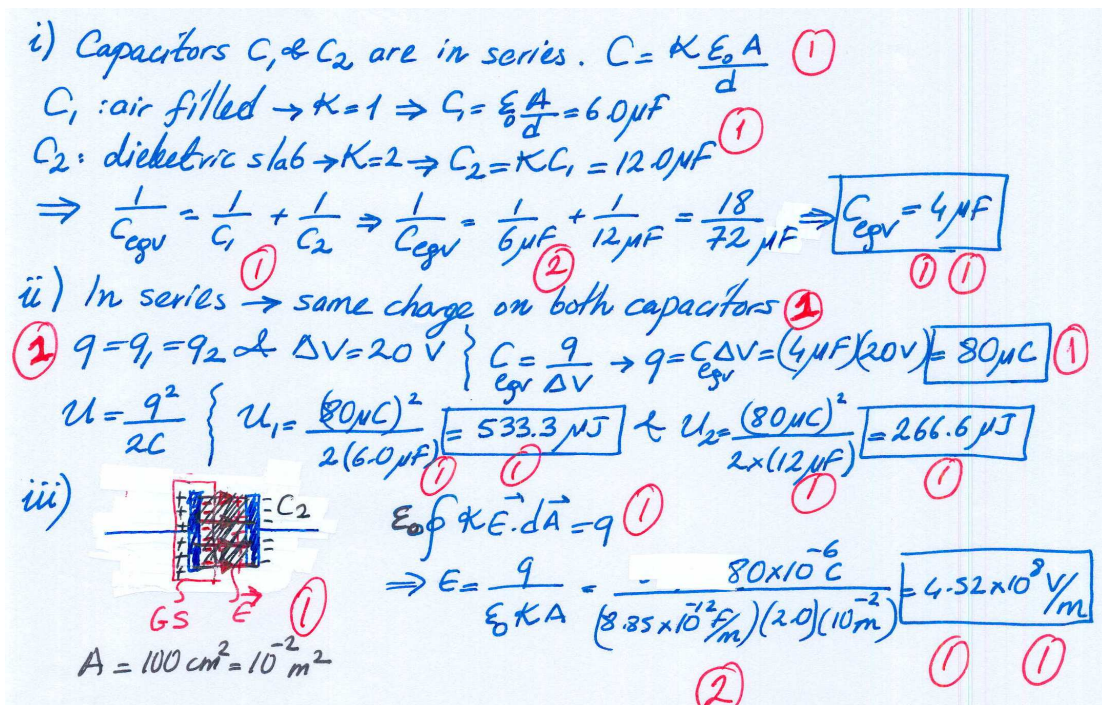 i) Capacitors C₁ & C₂ are in series. C = K ε₀A/d ①
C₁ : air filled → K=1 ⇒ C₁ = ε₀ A/d = 6.0 μF
C₂ : dielectric slab → K=2 → C₂ = KC₁ = 12.0 μF ①
⇒ 1/Ceqv = 1/C₁ + 1/C₂ ⇒ 1/Ceqv = 1/6μF + 1/12μF = 18/72 μF ⇒ Ceqv = 4 μF
① ② ① ①
ii) In series → same charge on both capacitors ①
① q = q₁ = q₂ & ΔV = 20 V } Ceqv = q/ΔV → q = Ceqv ΔV = (4μF)(20V) = 80μC ①
U = q²/2C { U₁ = (80μC)²/2(6.0μF) = 533.3 μJ & U₂ = (80μC)²/2×(12μF) = 266.6 μJ
① ① ① ①
iii) + + + + + + = C₂ ε₀∮ K E⃗.dA⃗ = q ①
⇒ E = q/ε₀KA = 80×10⁻⁶C/(8.85×10⁻¹² F/m)(2.0)(10⁻²m²) = 4.52×10⁸ V/m
GS E⃗ ①
② ① ①
A = 100 cm² = 10⁻² m²